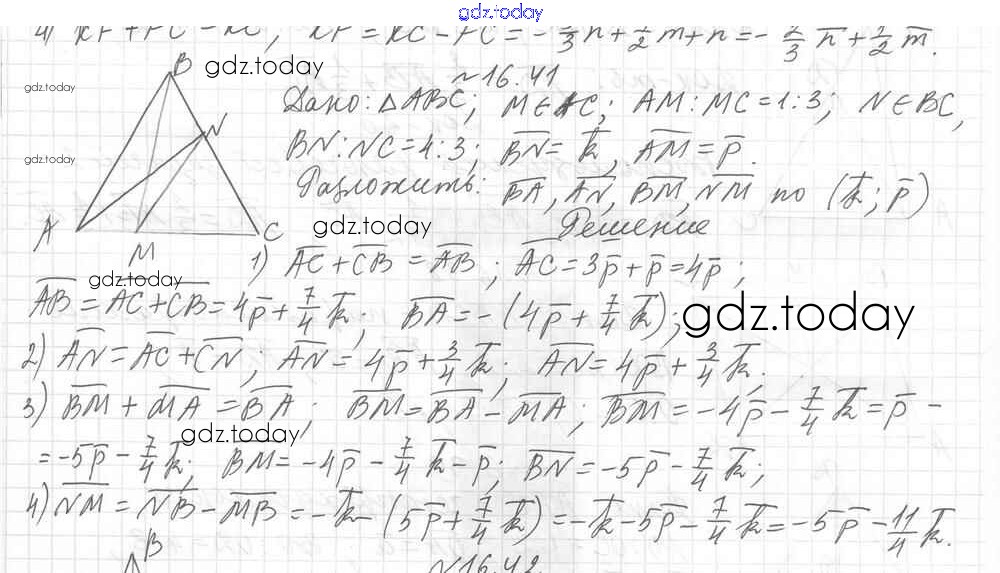 gdz.today
4) KP+PC=KC; KP=KC-PC=-2/3n+1/2m+n=-2/3n̅+1/2m̅.
gdz.today
gdz.today
B
№16.41
Дано: △ABC; M∈AC; AM:MC=1:3; N∈BC,
N
gdz.today
BN:NC=4:3; B͞N=k̅, A͞M=p̅.
Разложить: B͞A, A͞N, B͞M, N͞M по (k̅; p̅)
A
M
C
gdz.today
Решение
1) A͞C+C͞B=A͞B; A͞C=3p̅+p̅=4p̅;
gdz.today
A͞B=A͞C+C͞B=4p̅+7/4k̅; B͞A=-(4p̅+7/4k̅);
gdz.today
2) A͞N=A͞C+C͞N; A͞N=4p̅+3/4k̅; A͞N=4p̅+3/4k̅;
3) B͞M+M͞A=B͞A; B͞M=B͞A-M͞A; B͞M=-4p̅-7/4k̅=p̅-
gdz.today
=-5p̅-7/4k̅; B͞M=-4p̅-7/4k̅-p̅; B͞N=-5p̅-7/4k̅;
4) N͞M=N͞B-M͞B=-k̅-(5p̅+7/4k̅)=-k̅-5p̅-7/4k̅=-5p̅-11/4k̅.
B
№16.42